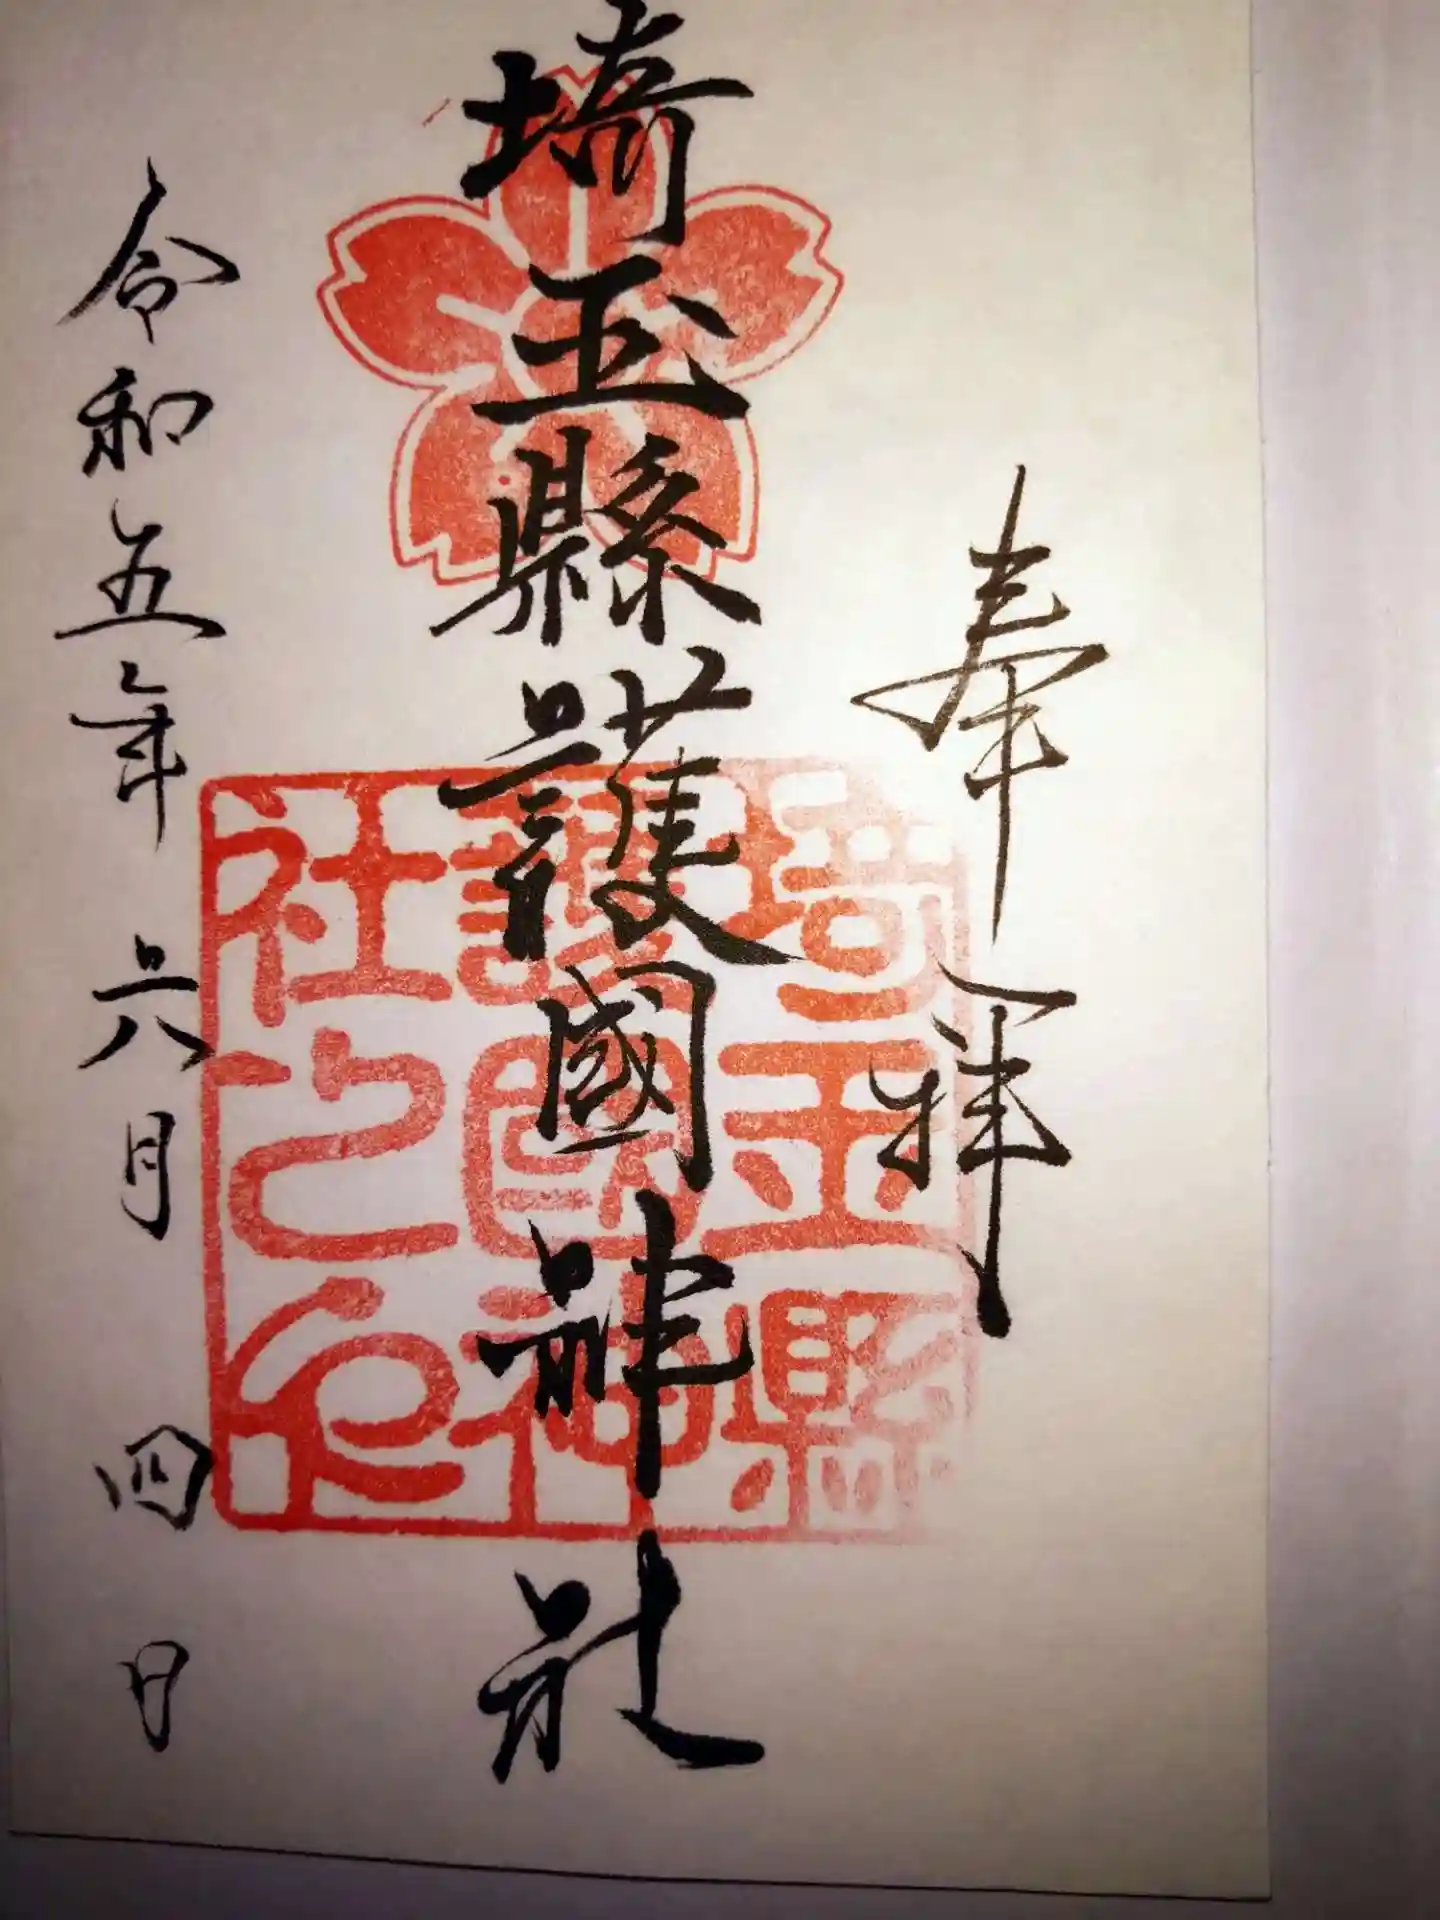 奉拝
埼玉縣護國神社
令和五年六月四日
埼玉縣
護國神
社之印